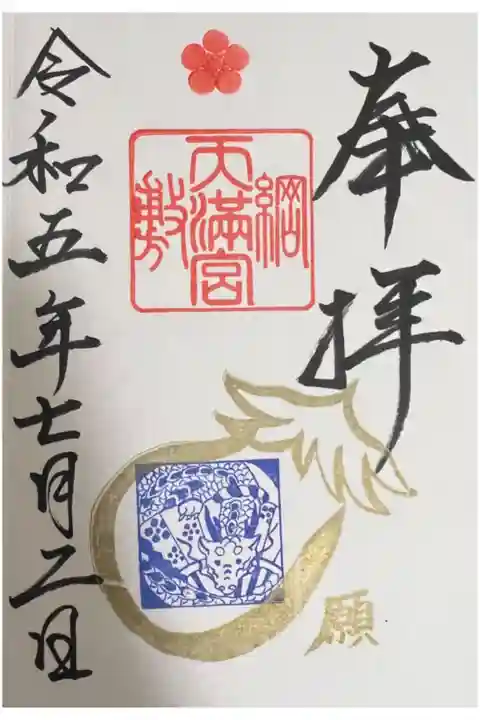 奉拝
綱敷
天満宮
願
令和五年七月二日